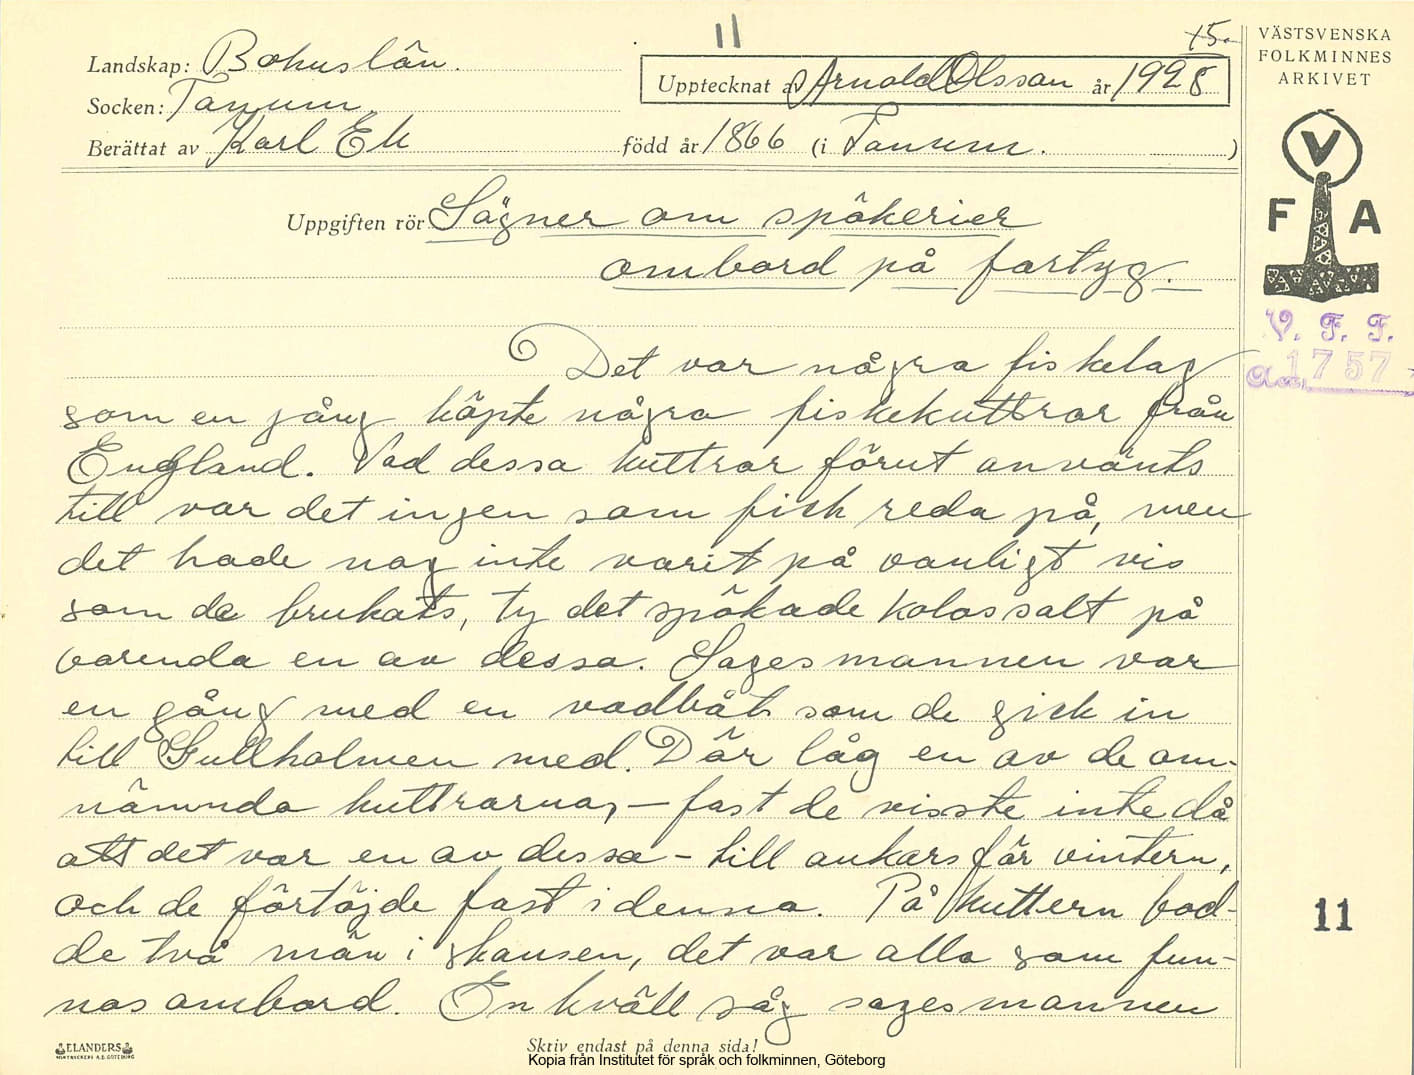 11
15.
Landskap: Bohuslän.
Upptecknat av Arnold Olsson år 1928
Socken: Tanum.
Berättat av Karl Ek född år 1866 (i Tanum. )
Uppgiften rör Sägner om spökerier
ombord på fartyg.
Det var några fiskelag
som en gång köpte några fiskekuttrar från
England. Vad dessa kuttrar förut använts
till var det ingen som fick reda på, men
det hade nog inte varit på vanligt vis
som de brukats, ty det spökade kolossalt på
varenda en av dessa. Sagesmannen var
en gång med en vadbåt som de gick in
till Gullholmen med. Där låg en av de om-
nämnda kuttrarna, – fast de visste inte då
att det var en av dessa – till ankars för vintern,
och de förtöjde fast i denna. På kuttern bod-
de två män i skansen, det var alla som fun-
nos ombord. En kväll såg sagesmannen
Skriv endast på denna sida!
ELANDERS
Kopia från Institutet för språk och folkminnen, Göteborg
VÄSTSVENSKA
FOLKMINNES
ARKIVET
V
F A
V. F. F.
1757
11